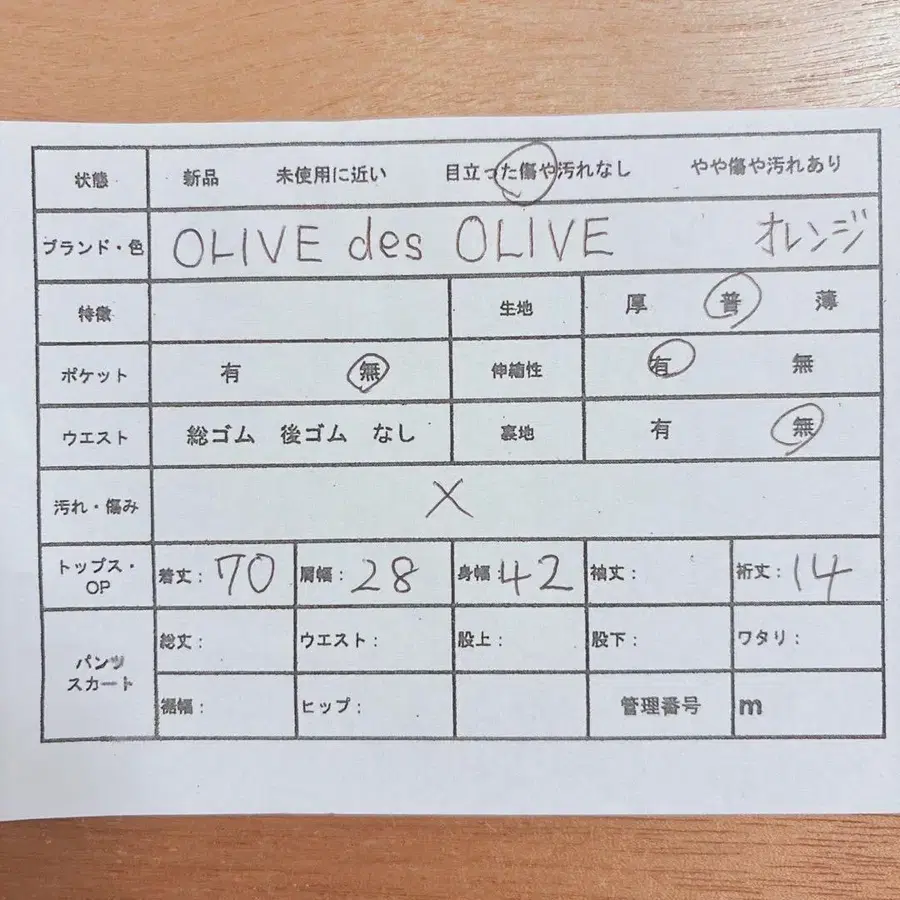 状態 新品 未使用に近い 目立った傷や汚れなし やや傷や汚れあり
ブランド・色 OLIVE des OLIVE オレンジ
特徴 生地 厚 普 薄
ポケット 有 無 伸縮性 有 無
ウエスト 総ゴム 後ゴム なし 裏地 有 無
汚れ・傷み X
トップス・OP 着丈: 70 肩幅: 28 身幅: 42 袖丈: 裄丈: 14
パンツ スカート 総丈: ウエスト: 股上: 股下: ワタリ:
裾幅: ヒップ: 管理番号 m